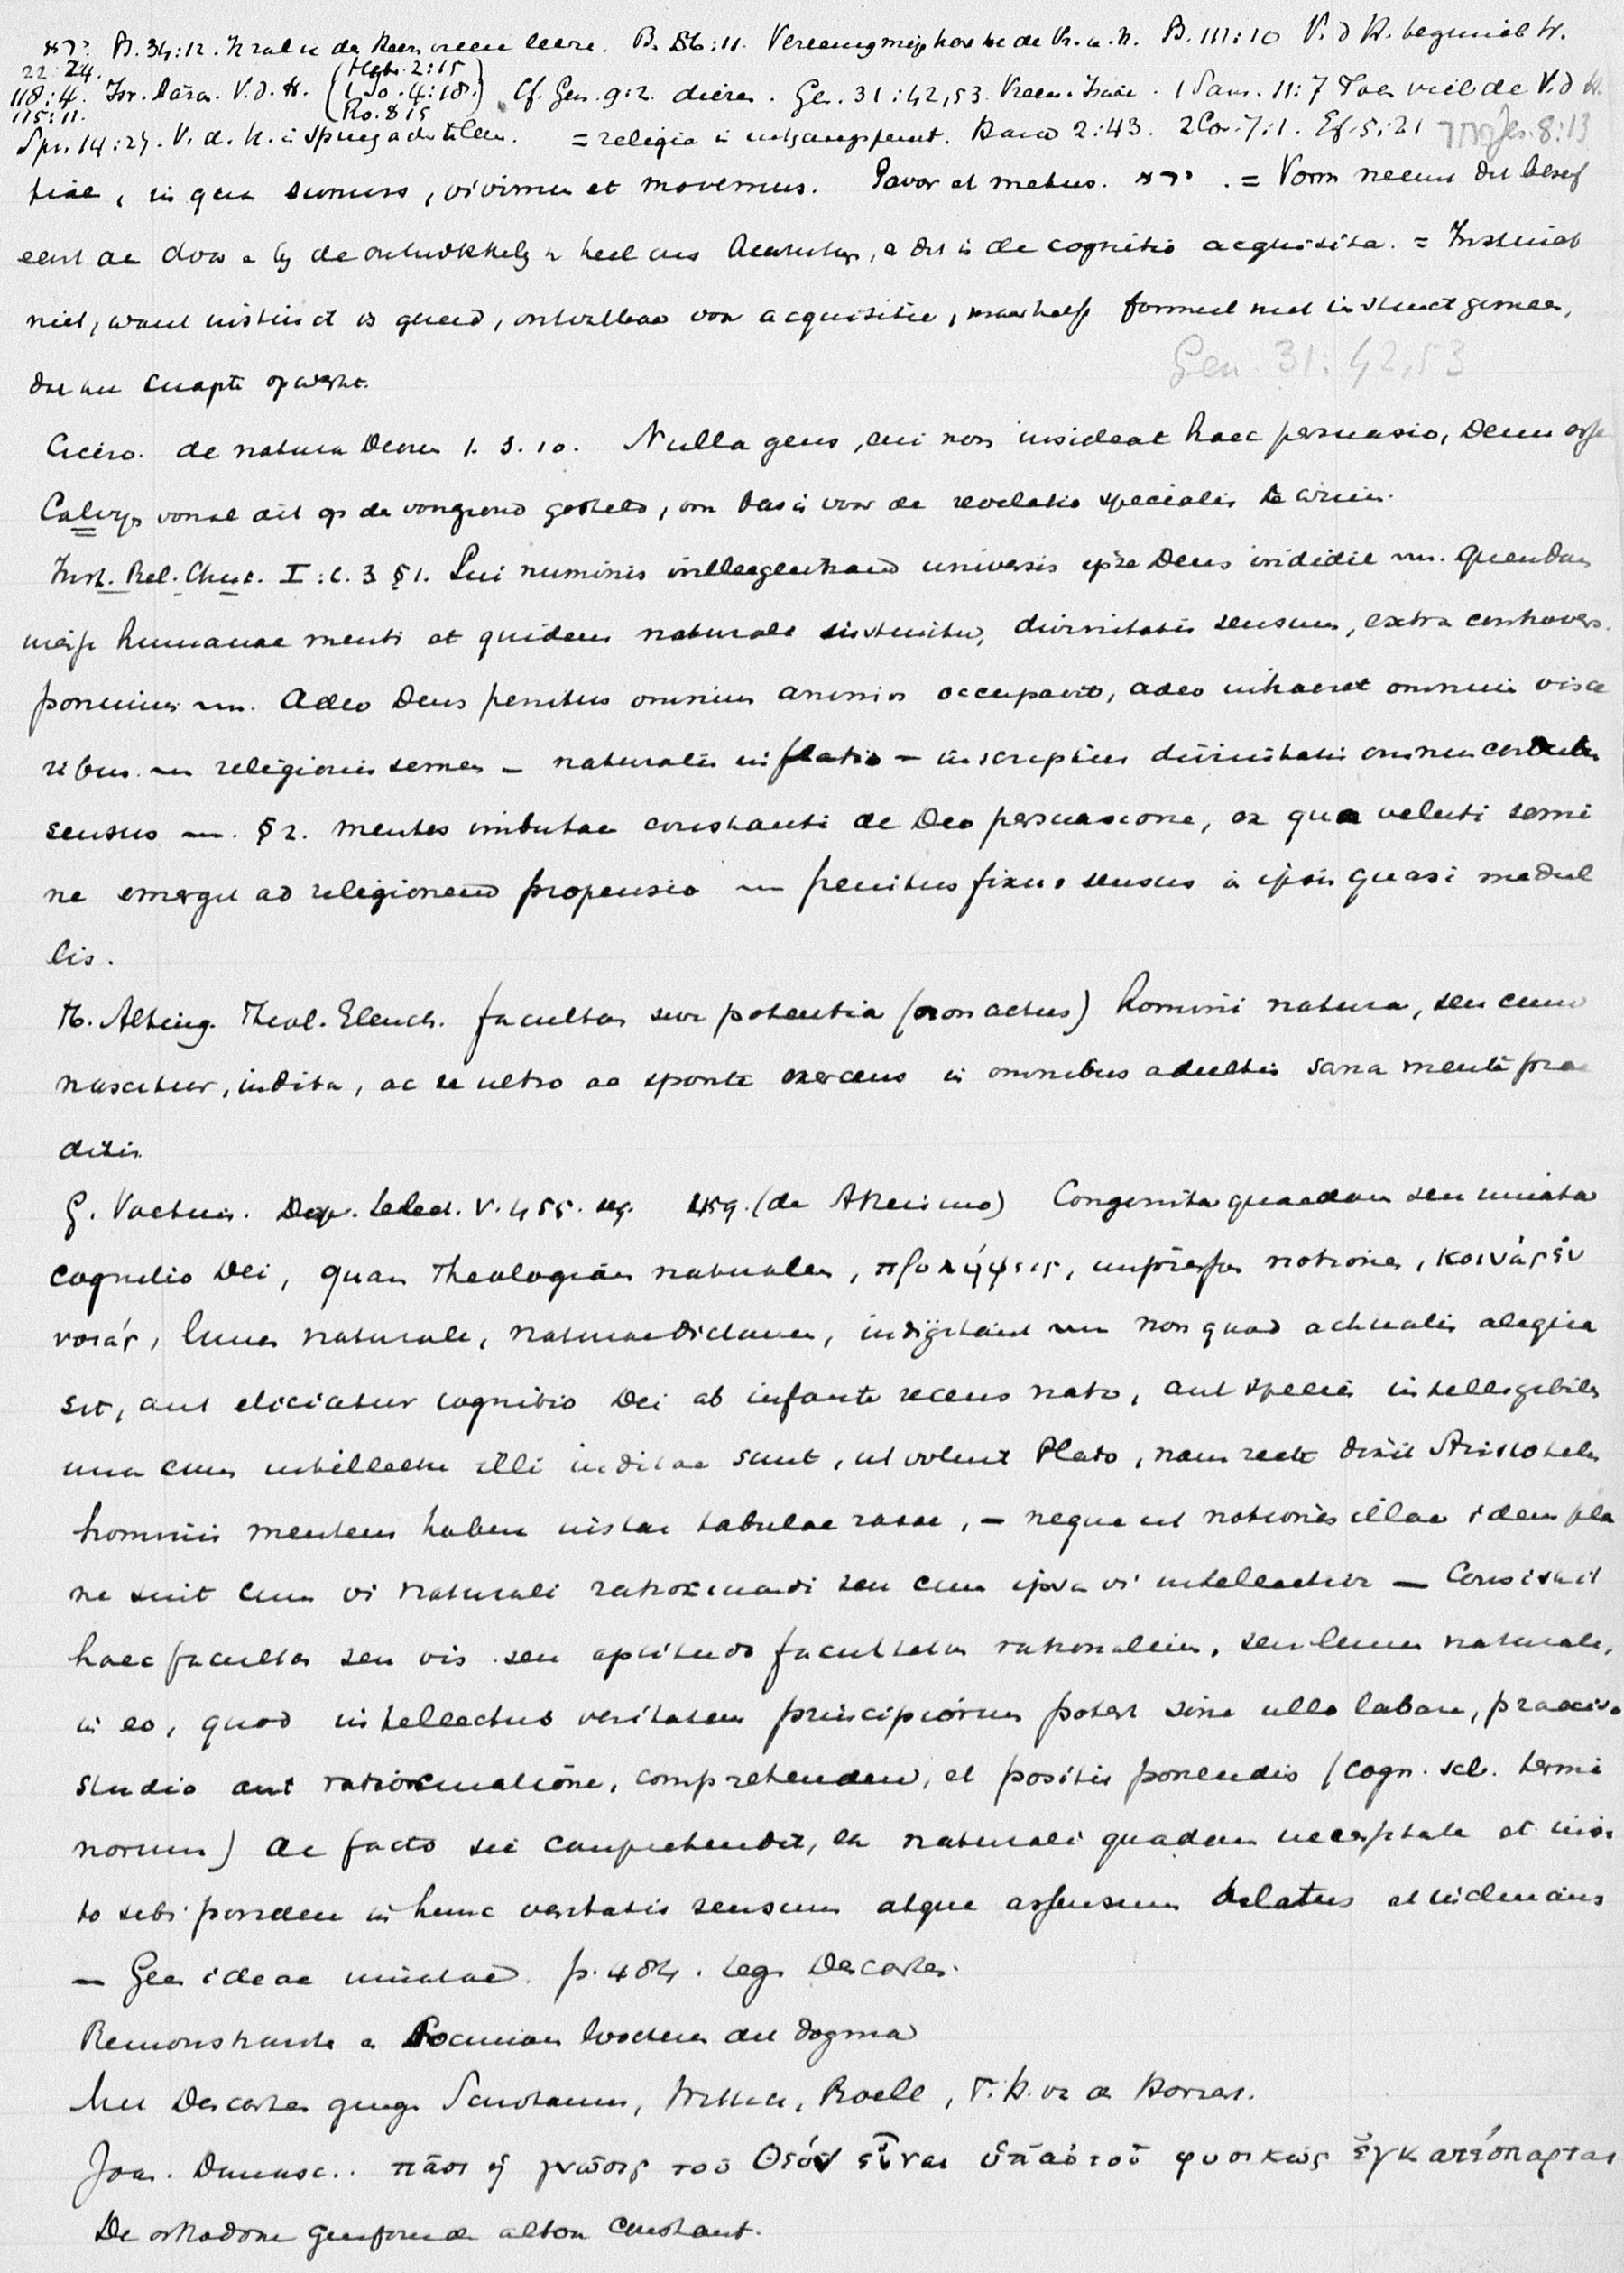 ירא. Ps. 34:12. Ik zal u des Heeren vreeze leere. Ps. 86:11. Vereenig mijn hart tot de Vr. u. N. Ps. 111:10 V. d H. beginsel W.
22:24.
118:4. Isr. V. d. H. (Hebr. 2:15) (1 Jo. 4:18.) (Ro. 8 15) Cf. Gen. 9:2. dieren. Gen. 31:42,53. Vreeze Izaäc. 1 Sam. 11:7 Toen viel de V. d H.
115:11.
Spr. 14:27. V. d. H. is springader des levens. = religio in Hand 2:43. 2 Cor. 7:1. Ef. 5:21 Jes. 8:13
tiae, in qua sumus, vivimus et movemus. Pavor et metus. ירא. = Vorm neemt dit besef
eerst aan door en bij de ontwikkeling v heel ons bewustzijn, en dit is de cognitio acquisita. = Instinct
niet, want instinct is gereed, onvatbaar voor acquisitie, maar half formeel met instinct gemeen,
Gen. 31:42,53
dat het opwerkt.
Cicero. de natura Deorum 1. 3. 10. Nulla gens, cui non insideat haec persuasio, Deum esse
Calvijn vooral dit op de voorgrond gesteld, om basis voor de revelatio specialis te winnen.
Inst. Rel. Christ. I: c. 3 § 1. Sui numinis intelligentiam universis ipse Deus indidit ~. Quendam
inesse humanae menti et quidem naturali instinctu, divinitatis sensum, extra controvers.
ponimus ~. Adeo Deus penitus omnium animos occupavit, adeo inhaeret omnium visce
ribus ~ religionis semen – naturalis inflatio – inscriptus divinitatis omnium cordibus
sensus ~. § 2. mentes imbutae constanti de Deo persuasione, ex qua veluti semi
ne emergit ad religionem propensio ~ penitus fixus sensus in ipsis quasi medul
lis.
H. Alting. Theol. Elench. facultas sive potentia (non actus) homini natura, seu cum
nascitur, indita, ac se ultro ac sponte exercens in omnibus adultis sana mente prae
ditis
G. Voetius. Disp. Select. V. 455. sq. 459. (de Atheismo) Congenita quaedam seu innata
cognitio Dei, quam Theologiam naturalem, προλήψεις, impressas notiones, κοινὰς ἐν
νοιάς, lumen naturale, naturae dictamen, indigitant ~ non quod actualis aliqua
sit, aut eliciatur cognitio Dei ab infante recens nato, aut species intelligibiles
una cum intellectu illi inditae sunt, ut voluit Plato, nam recte dixit Aristoteles
hominis mentem habere instar tabulae rasae, – neque ut notiones illae idem pla
ne sint cum vi naturali ratiocinandi seu cum ipsa vi intellectiva – Consistit
haec facultas seu vis seu aptitudo facultatis rationalis, seu lumen naturale,
in eo, quod intellectus veritatem principiorum potest sine ullo labore, praevio
studio aut ratiocinatione, comprehendere, et positis ponendis (cogn. scl. termi
norum) de facto sic comprehendit, ex naturali quadam necessitate et insi
to sibi pondere in hunc veritatis sensum atque assensum delatus et inclinans
– Geen ideae innatae. p. 484. tegen Descartes.
Remonstranten en Socinianen bestreden dit dogma
Met Descartes gingen Schotanus, Wittich, Roell, T. H. v. d. Honert.
Joan. Damasc. πᾶσι ἡ γνῶσις τοῦ Θεόν εἶναι ὑπ' αὐτοῦ φυσικῶς ἐγκατέσπαρται
De orthodoxe Gereformeerden altoos constant.